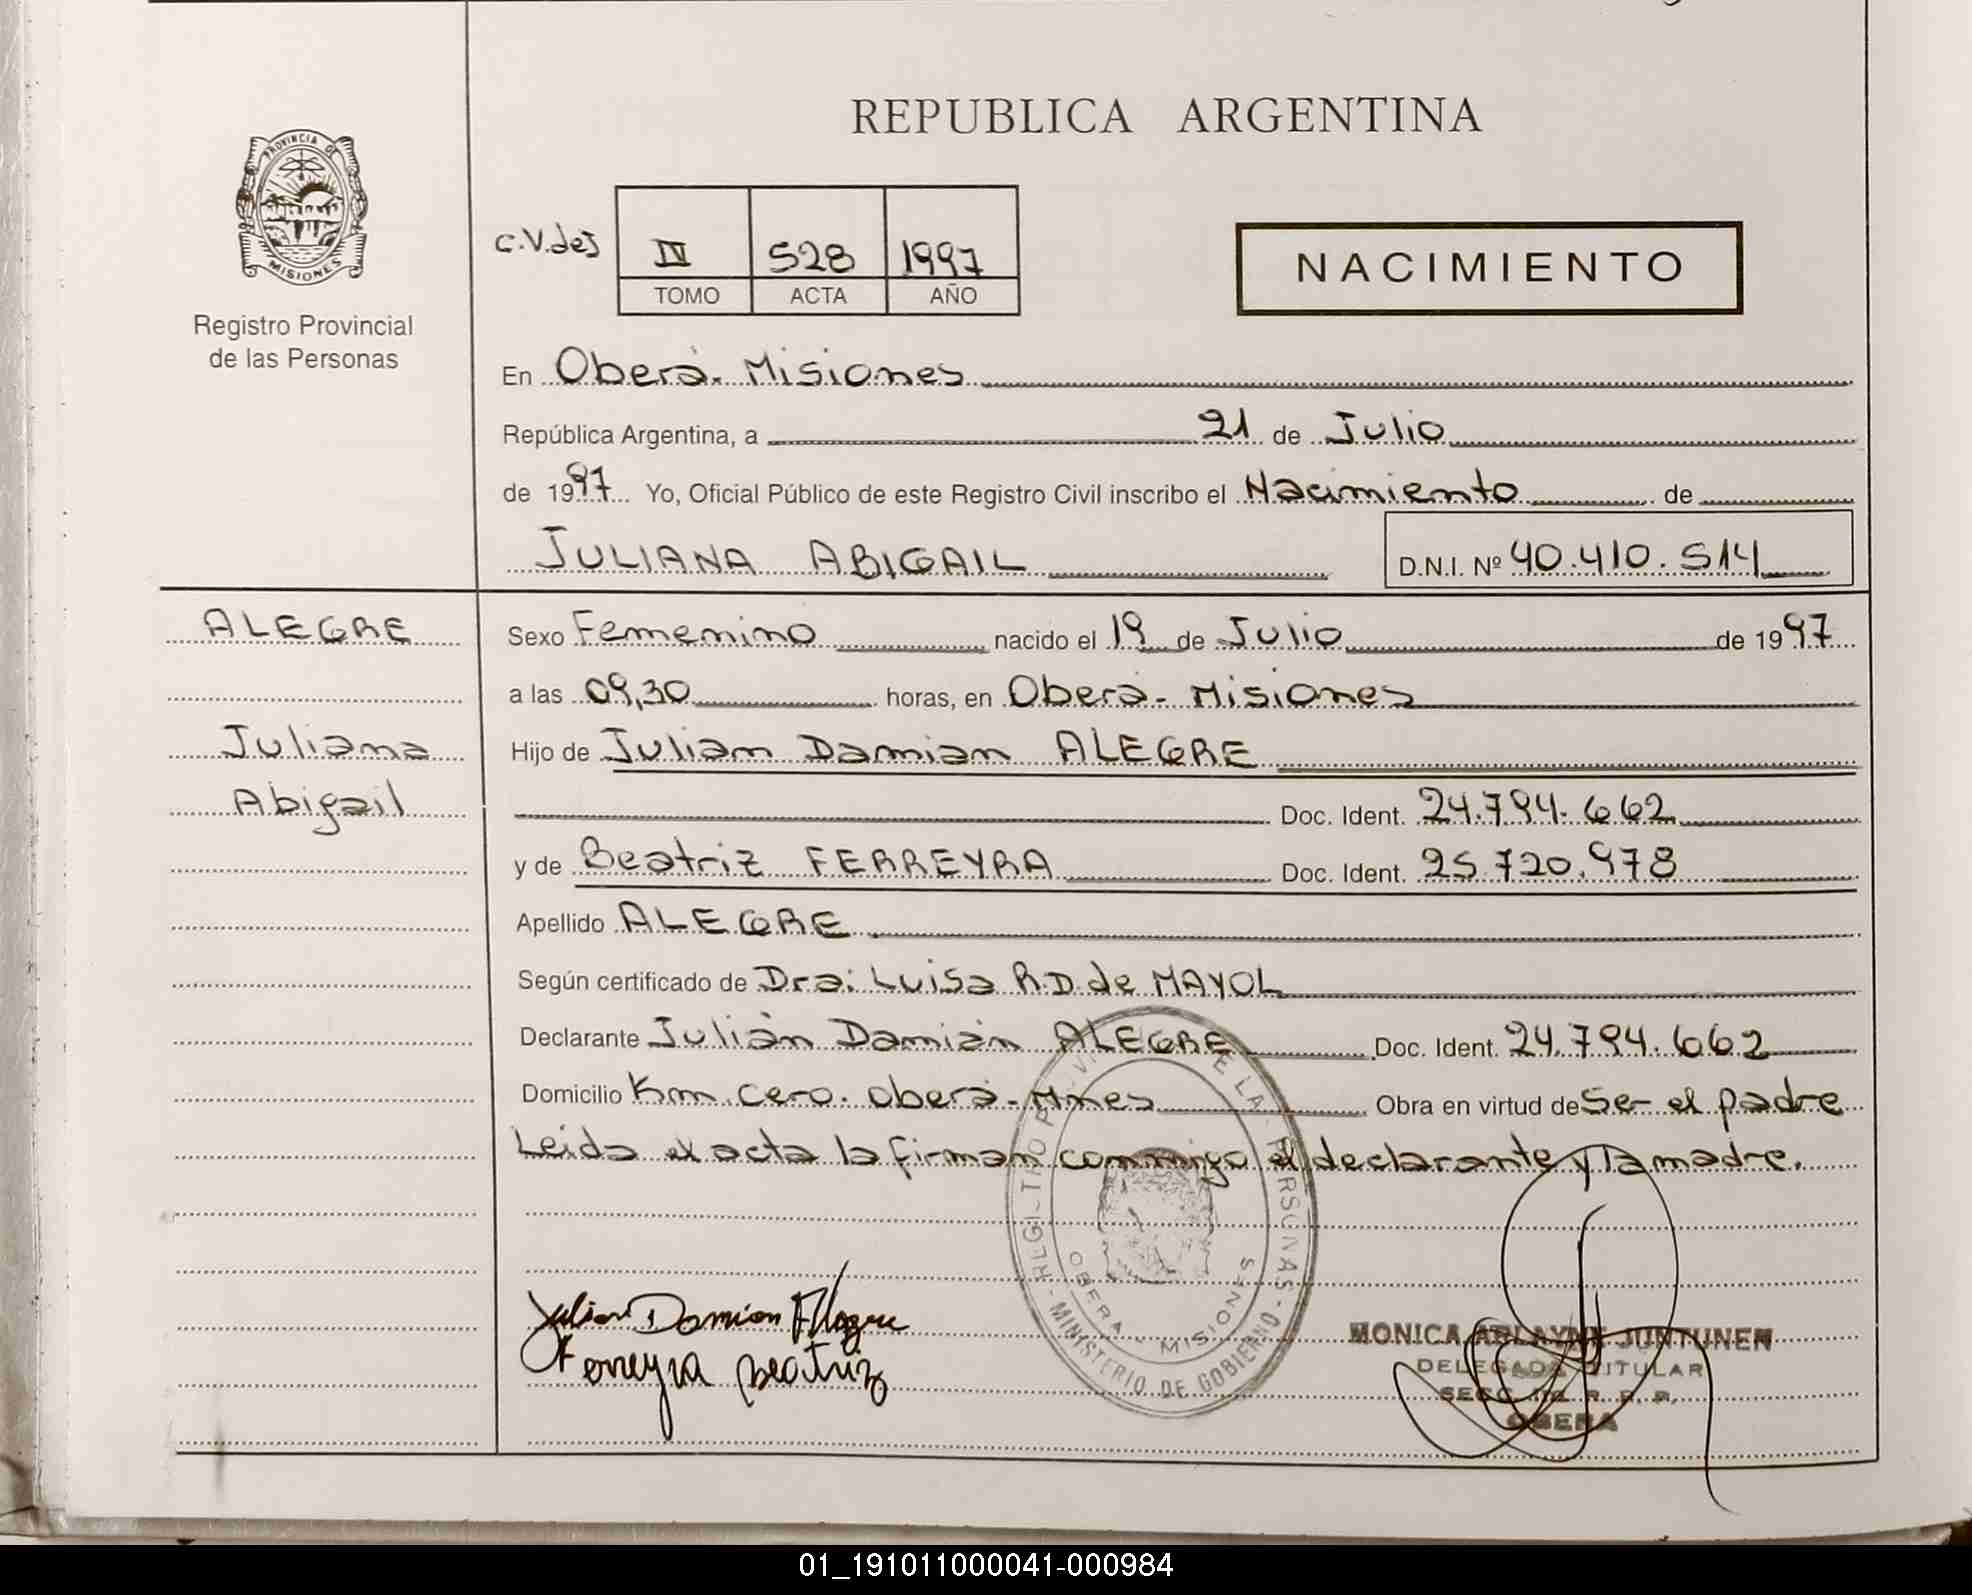 REPUBLICA ARGENTINA
PROVINCIA DE
MISIONES
Registro Provincial
de las Personas
C.V.des
IV 528 1997
TOMO ACTA AÑO
NACIMIENTO
En Oberá. Misiones
República Argentina, a 21 de Julio
de 1997 Yo, Oficial Público de este Registro Civil inscribo el Nacimiento de
JULIANA ABIGAIL D.N.I. Nº 40.410.514
ALEGRE
Juliana
Abigail
Sexo Femenino nacido el 19 de Julio de 1997
a las 09,30 horas, en Oberá - Misiones
Hijo de Julian Damian ALEGRE
Doc. Ident. 24.794.662
y de Beatriz FERREYRA Doc. Ident. 25.720.978
Apellido ALEGRE
Según certificado de Dra: Luisa R.D. de MAYOL
Declarante Julián Damián ALEGRE Doc. Ident. 24.794.662
Domicilio Km. cero. Oberá - Mnes Obra en virtud de Ser el padre
Leida el acta la firman conmigo el declarante y la madre.
DE LAS PERSONAS - MINISTERIO DE GOBIERNO
OBERA - MISIONES
Julian Damian Alegre
Ferreyra Beatriz
MONICA JUNTUNEN
DELEGADA TITULAR
OBERA
01_191011000041-000984